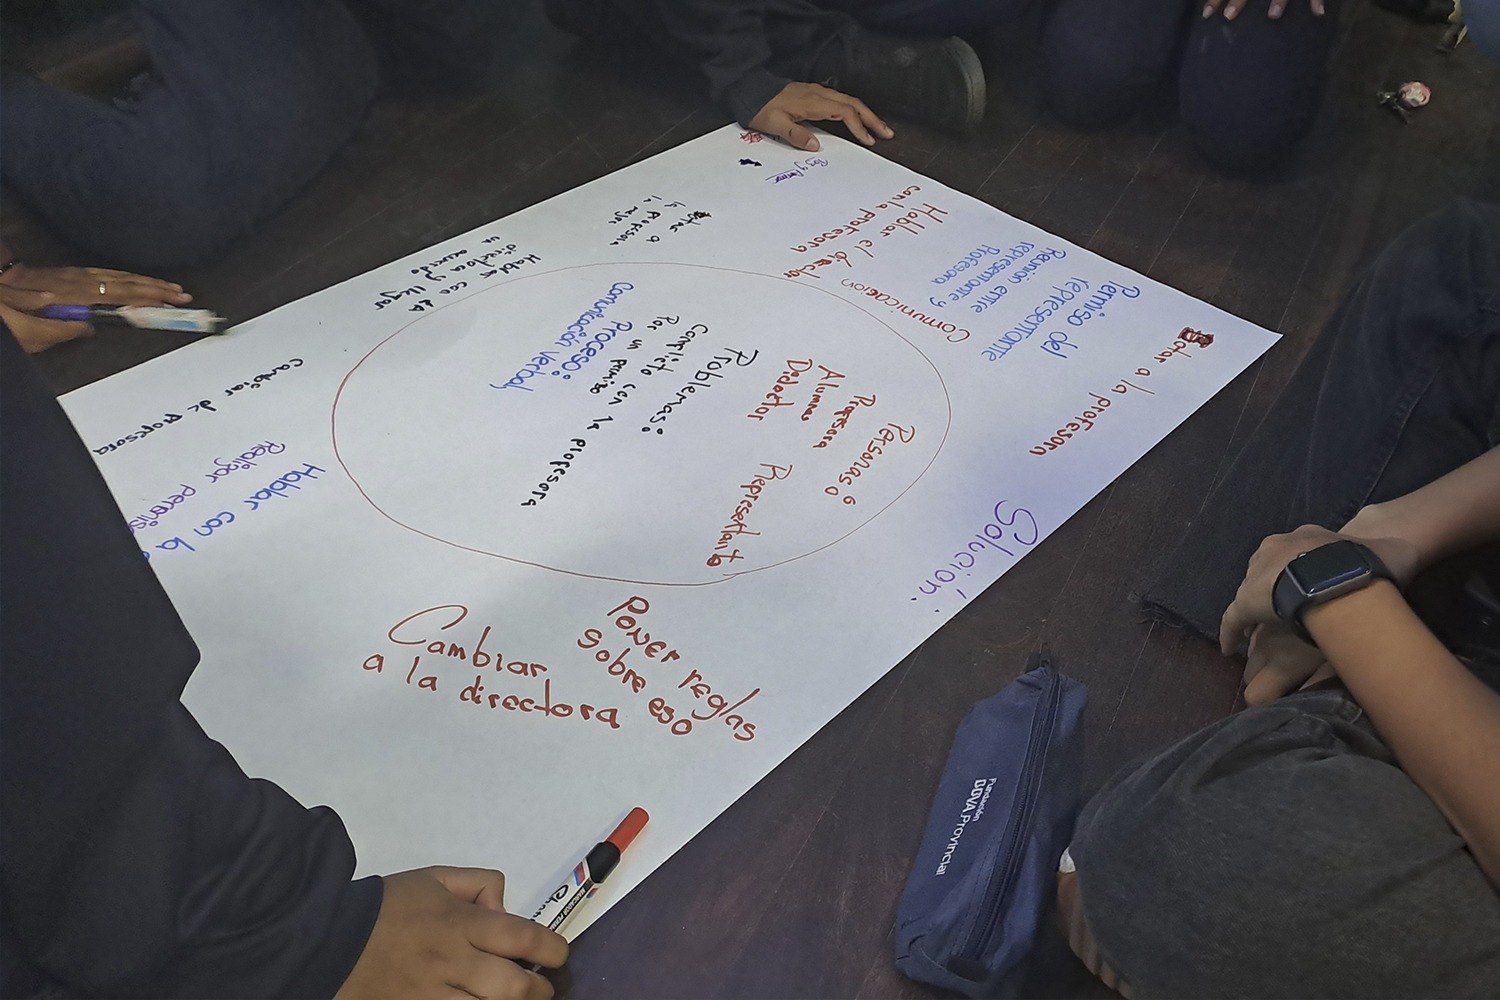 Personas:
Profesora
Alumnas
Dirǝctor
Represetanto
Problemas:
Conflicto con la profesora
Por un permiso
Proceso:
Comunicación verbal
Solución:
Botar a la profesora
Permiso del
representante
Reunion entre
representante y
Profesora
Comunicacion
Hablar el director
con la profesora
Botar a
la profesora
la mejor
Hablar con la
directora y llegar
un acuerdo
Cambiar de profesora
Realizar
Hablar con la
Poner reglas
sobre eso
Cambiar
a la directora
Fundación
BBVA Provincial